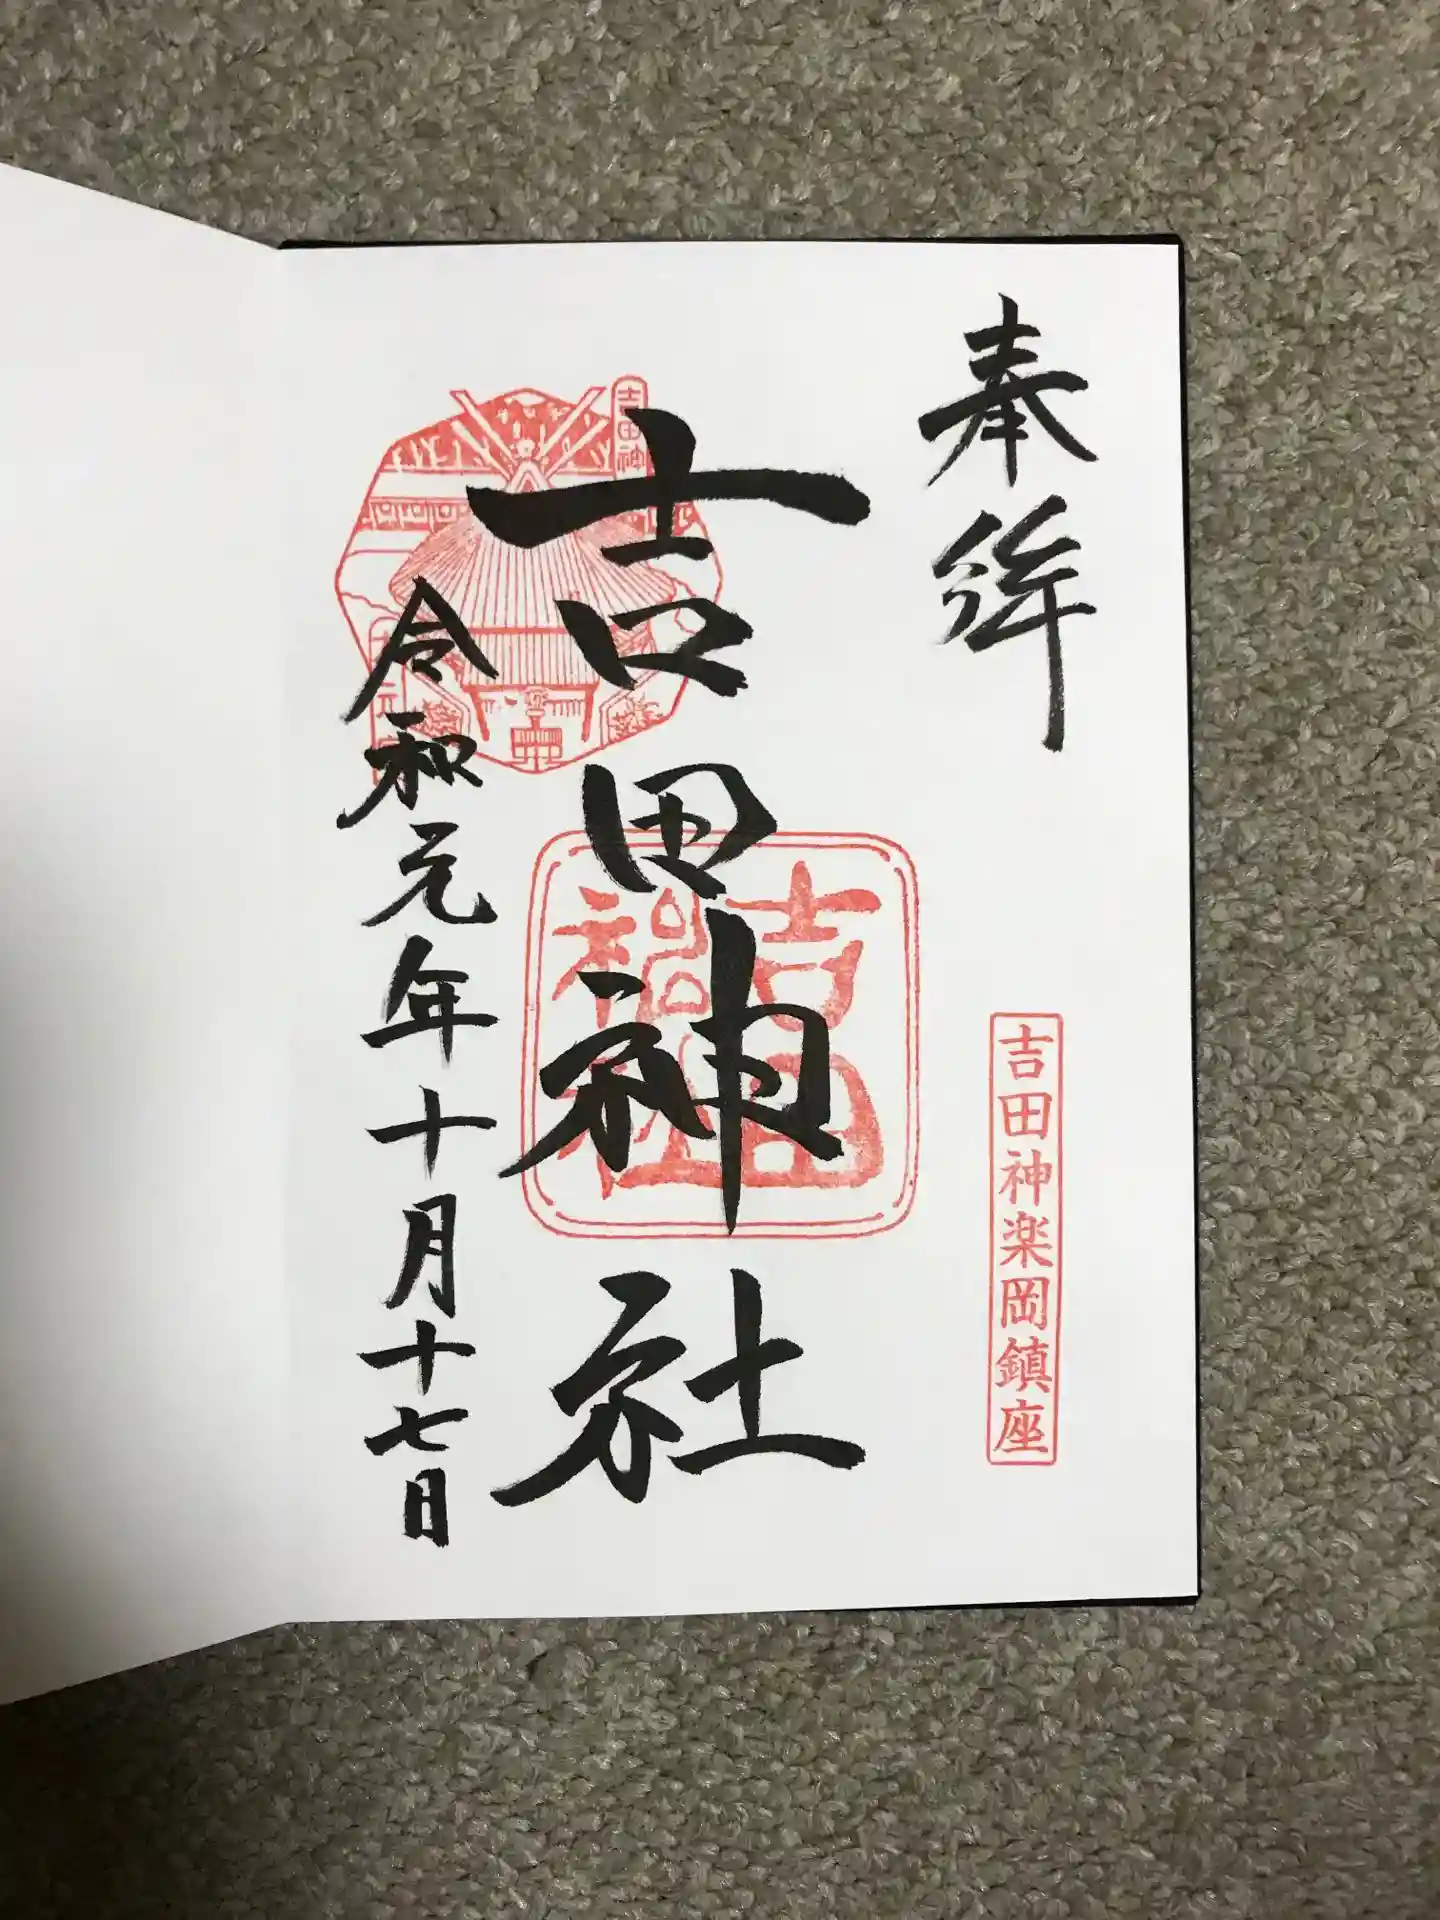 奉拝
吉田神楽岡鎮座
吉田神社
吉田神社
吉田神
令和元年十月十七日